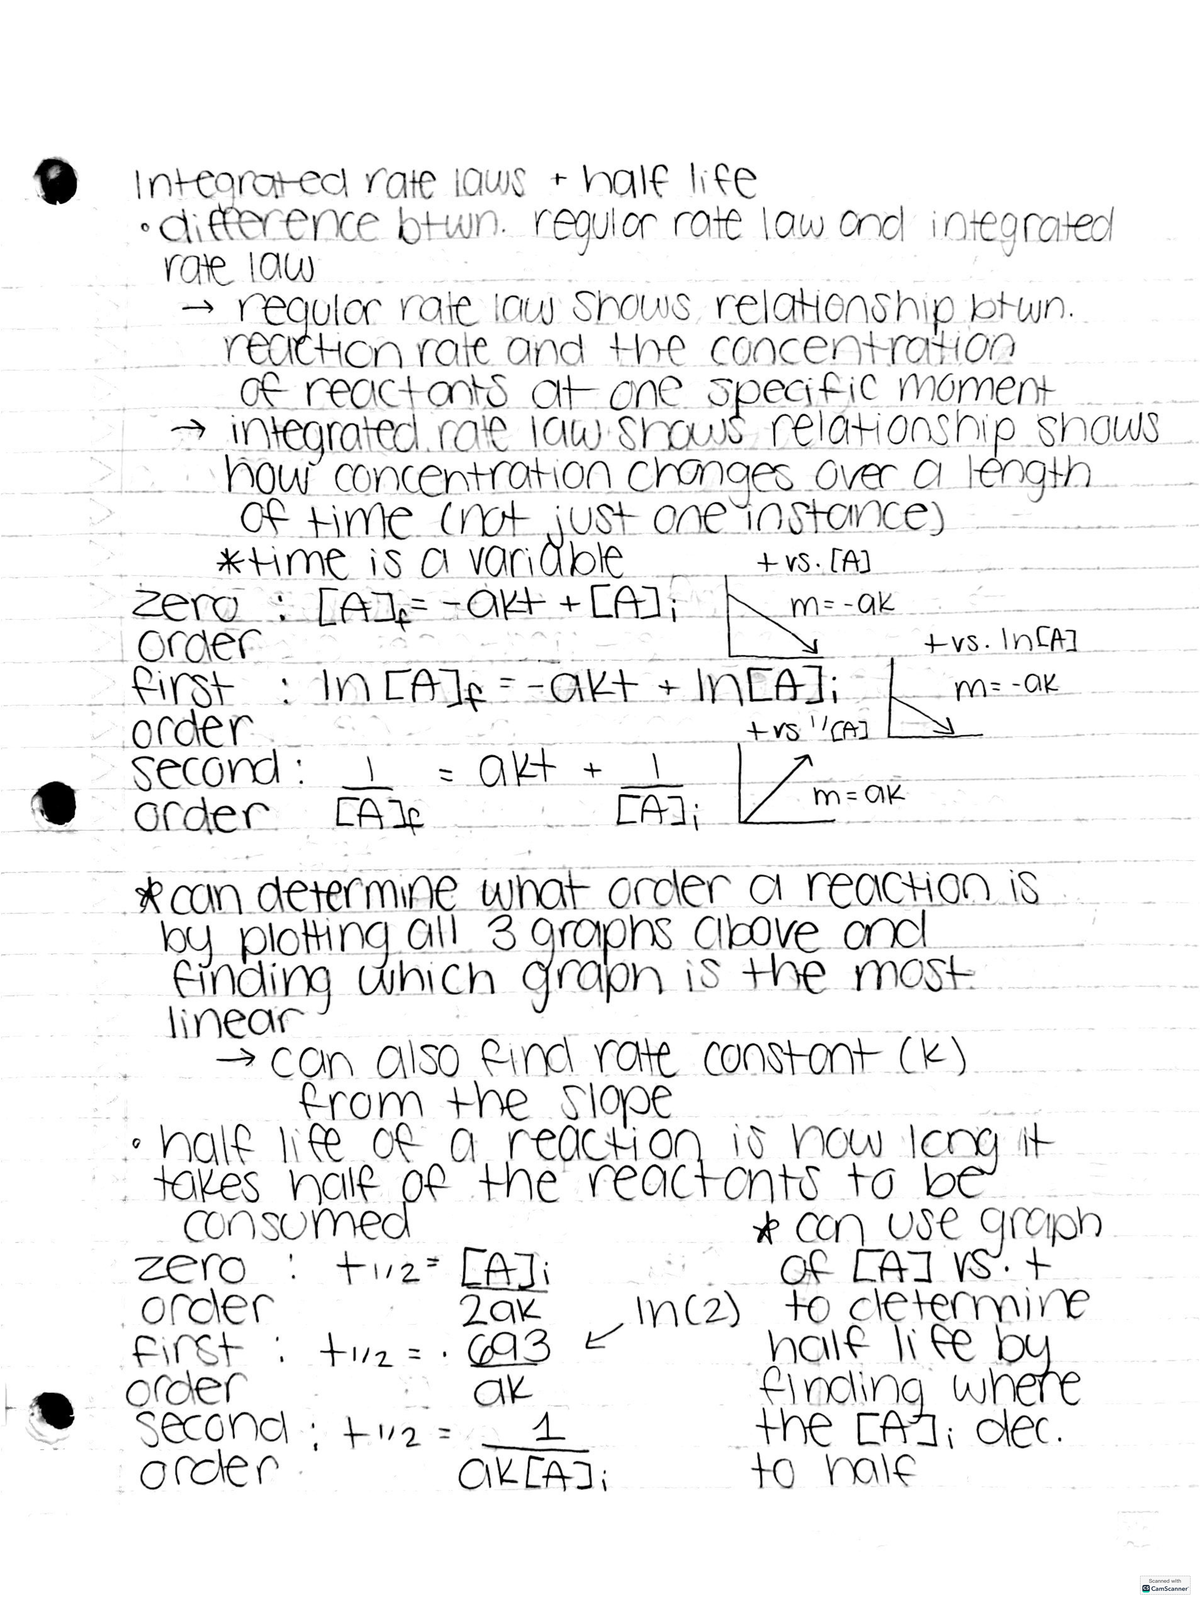 Integrated rate laws + half life
• difference btwn. regular rate law and integrated
rate law
→ regular rate law shows relationship btwn.
reaction rate and the concentration
of reactants at one specific moment
→ integrated rate law shows relationship shows
how concentration changes over a length
of time (not just one instance)
*time is a variable
t vs. [A]
zero : [A]f = -akt + [A]i
m = -ak
order
t vs. ln[A]
first : ln[A]f = -akt + ln[A]i
m = -ak
order
t vs 1/[A]
second : 1/[A]f = akt + 1/[A]i
order
m = ak
*can determine what order a reaction is
by plotting all 3 graphs above and
finding which graph is the most
linear
→ can also find rate constant (k)
from the slope
• half life of a reaction is how long it
takes half of the reactants to be
consumed
zero : t1/2 = [A]i/2ak
order
first : t1/2 = .693/ak
order
← ln(2)
second : t1/2 = 1/ak[A]i
order
* can use graph
of [A] vs. t
to determine
half life by
finding where
the [A]i dec.
to half
Scanned with
CamScanner